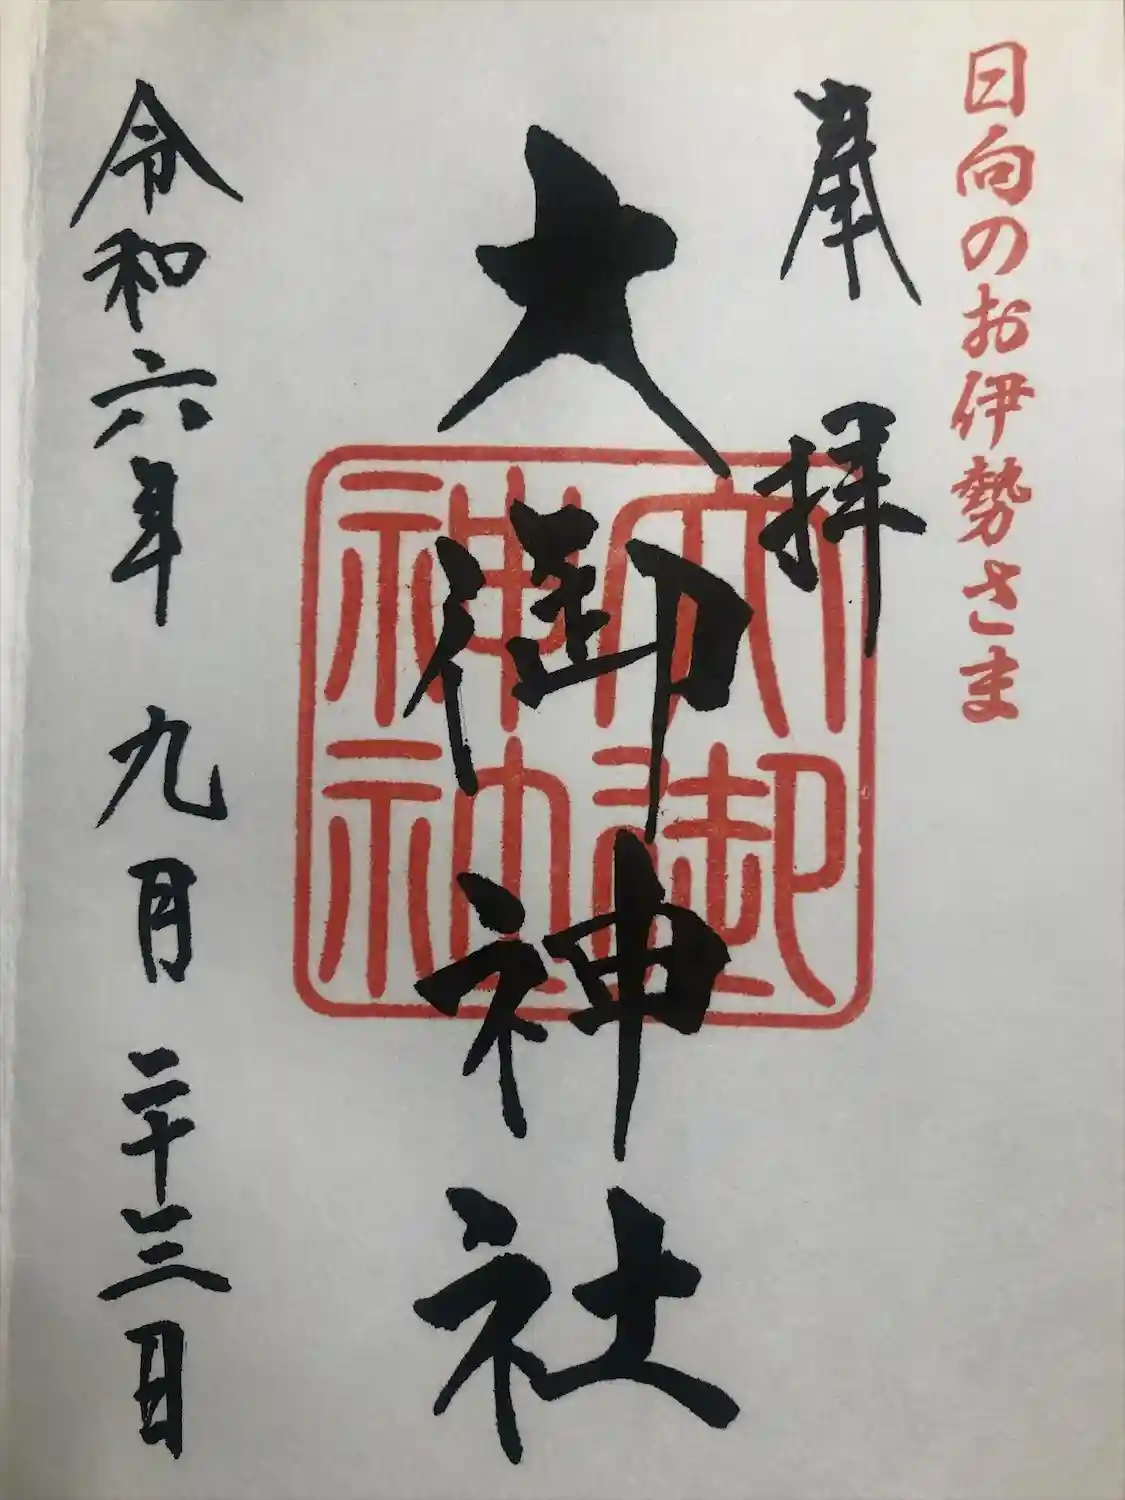 日向のお伊勢さま
奉拝
大御神社
大御神社
令和六年九月二十三日